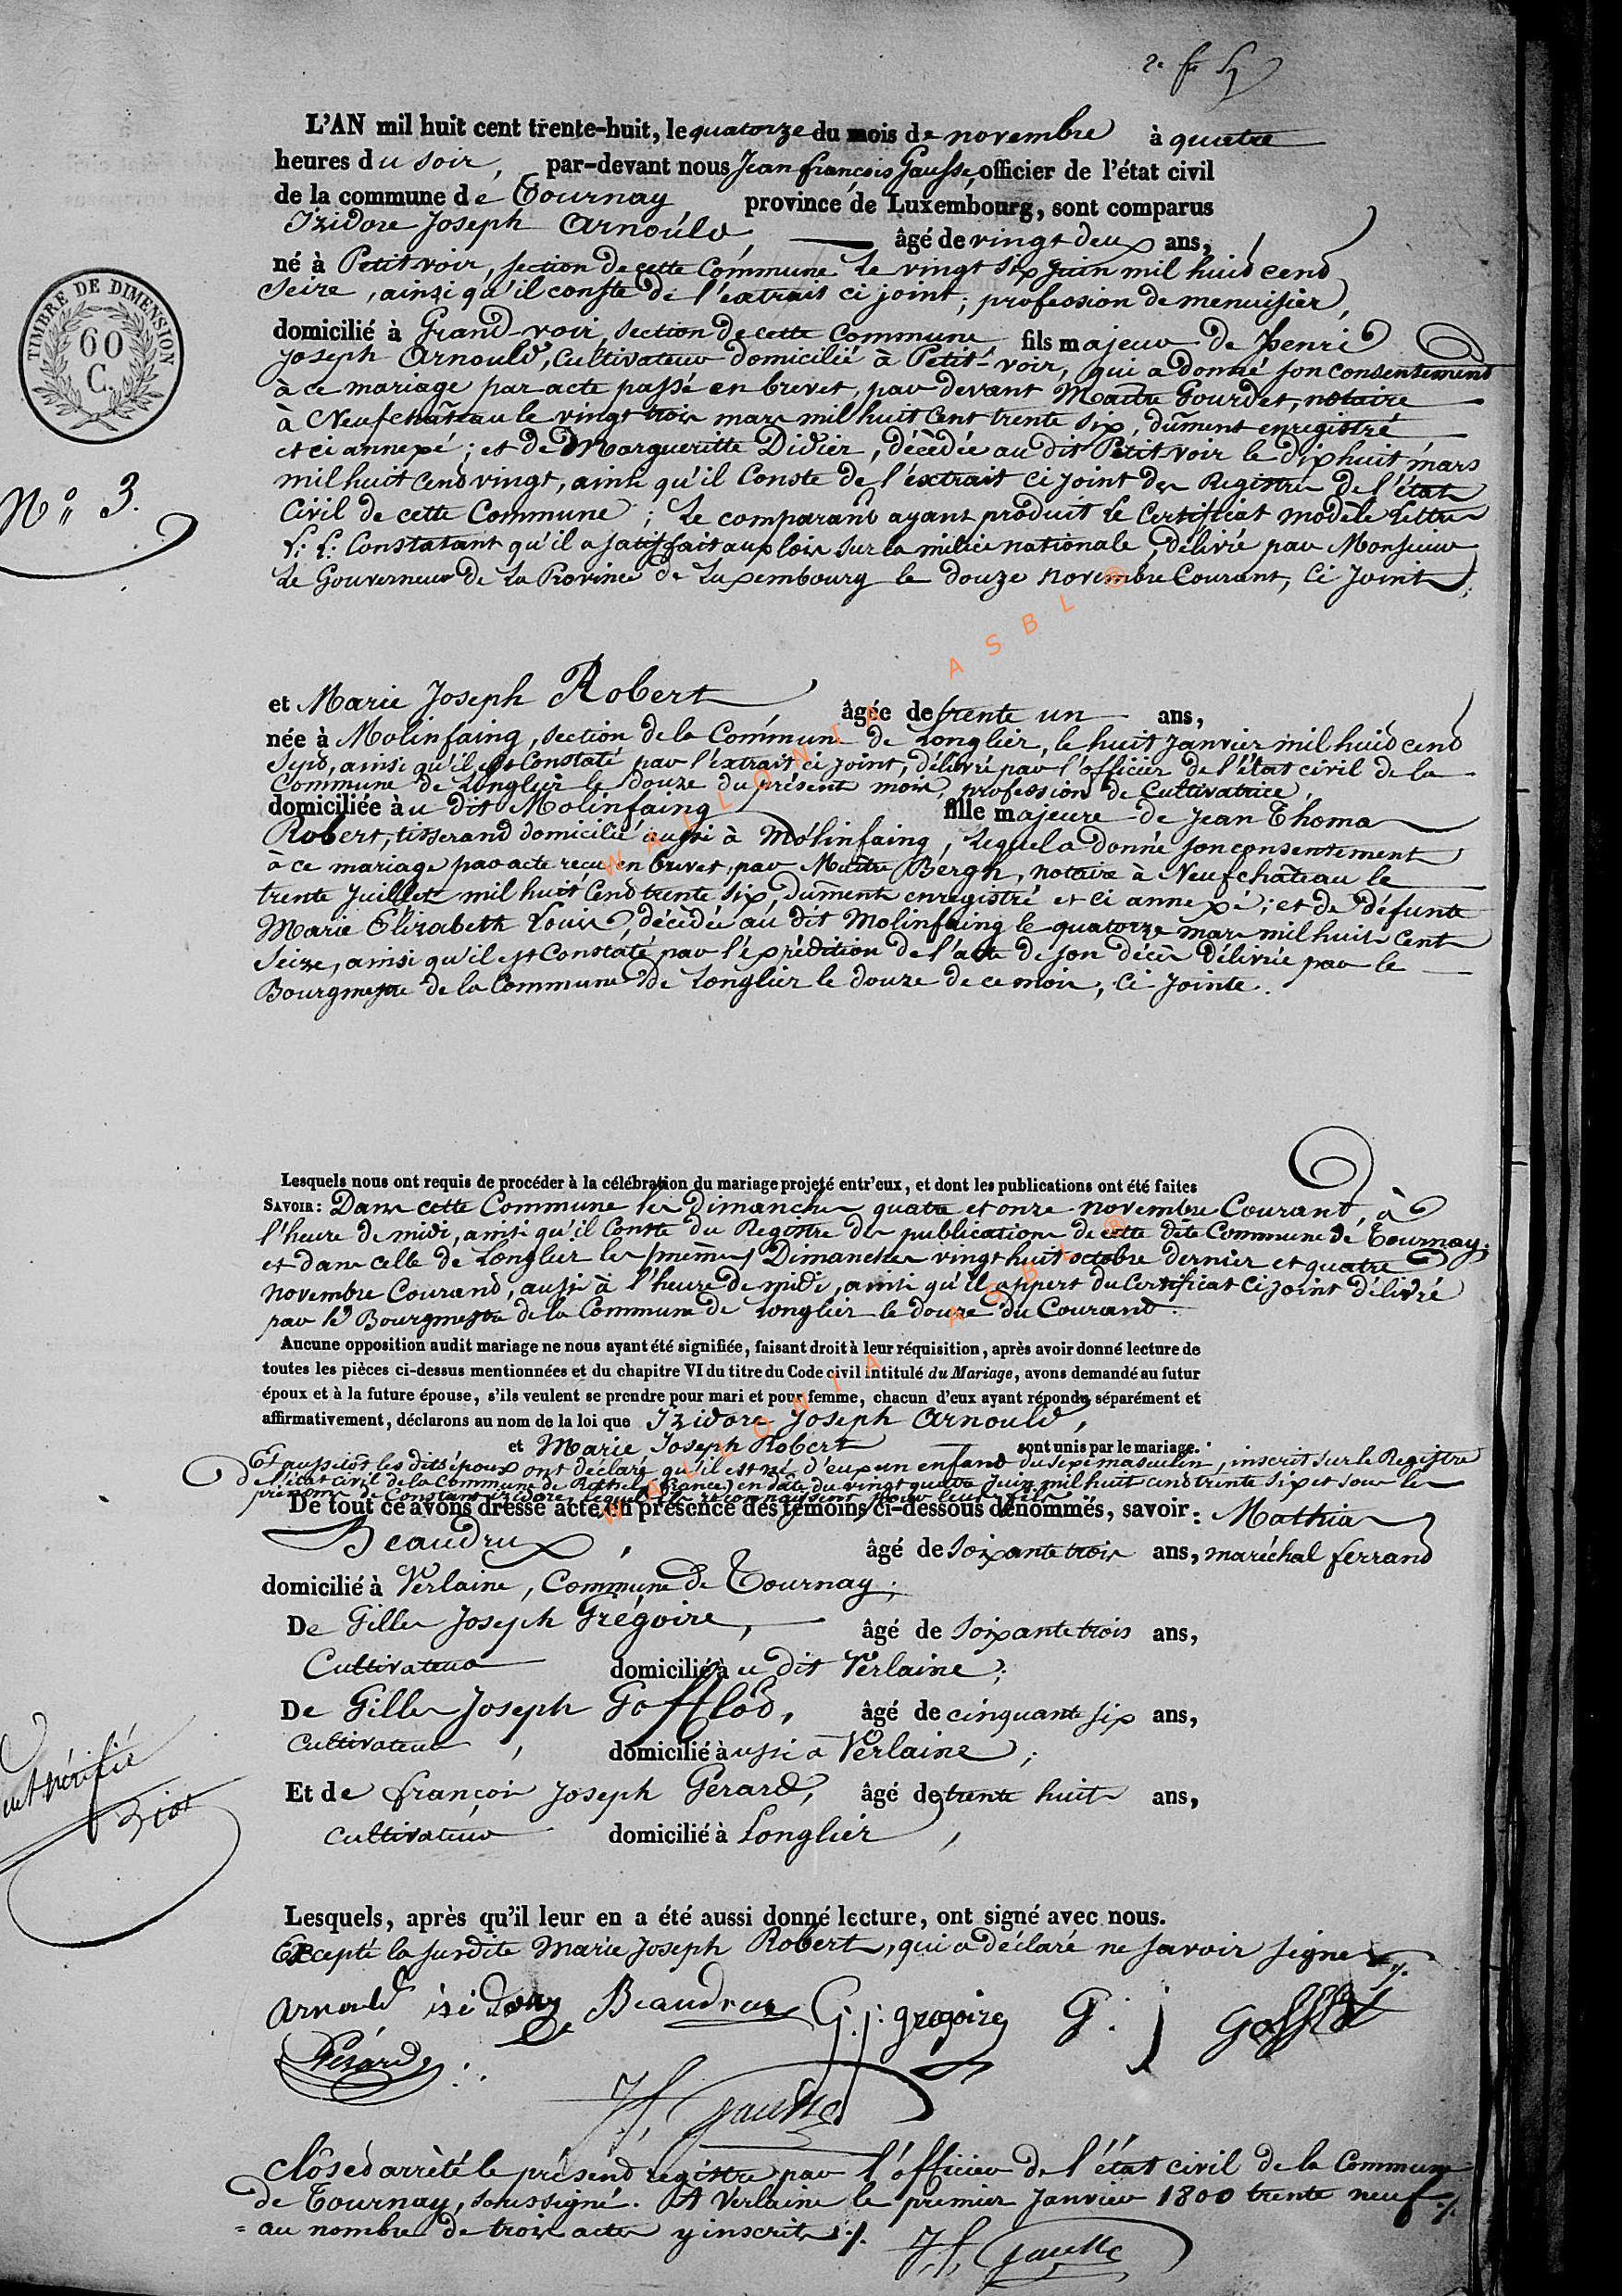 L'AN mil huit cent trente-huit, le quatorze du mois de novembre à quatre
heures du soir, par-devant nous Jean françois Gausse, officier de l'état civil
de la commune de Tournay province de Luxembourg, sont comparus
Izidore Joseph Arnould, âgé de vingt deux ans,
né à Petitvoir, section de cette Commune le vingt six juin mil huit cent
Seize, ainsi qu'il conste de l'extrait ci joint; profession de menuisier,
domicilié à Grand-voir, section de cette Commune fils majeur de Henri
Joseph Arnould, Cultivateur domicilié à Petit-voir, qui a donné son consentement
à ce mariage par acte passé en brevet, par devant Maître Gourdet, notaire
à Neufchâteau le vingt trois mars mil huit Cent trente six, dûment enregistré
et ci annexé; et de Margueritte Didier, décédée au dit Petitvoir le dix huit mars
TIMBRE DE DIMENSION
60
C.
mil huit Cent vingt, ainsi qu'il Conste de l'extrait ci joint des Registres de l'état
N° 3.
Civil de cette Commune; Le comparant ayant produit le Certificat modèle Lettres
L: L: Constatant qu'il a satisfait aux lois sur la milice nationale, délivré par Monsieur
Le Gouverneur de la Province de Luxembourg le douze novembre Courant, Ci Joint;
et Marie Joseph Robert âgée de trente un ans,
née à Molinfaing, section de la Commune de Longlier, le huit Janvier mil huit cent
Sept, ainsi qu'il est Constaté par l'extrait ci joint, délivré par l'officier de l'état civil de la
Commune de Longlier le douze du présent mois, profession de Cultivatrice,
domiciliée àu dit Molinfaing fille majeure de Jean Thomas
Robert, tisserand domicilié aussi à Molinfaing, lequel a donné son consentement
à ce mariage par acte reçu en brevet, par Maître Bergh, notaire à Neufchâteau le
trente Juillet mil huit Cent trente six, dûment enregistré et ci annexé; et de défunte
Marie Elisabeth Louis, décédée au dit Molinfaing le quatorze mars mil huit Cent
Seize, ainsi qu'il est Constaté par l'expédition de l'acte de son décès délivrée par le
Bourgmestre de la Commune de Longlier le douze de ce mois, Ci Jointe.
Lesquels nous ont requis de procéder à la célébration du mariage projeté entr'eux, et dont les publications ont été faites
SAVOIR: Dans cette Commune les Dimanches quatre et onze novembre Courant, à
l'heure de midi, ainsi qu'il Conste du Registre des publications de cette dite Commune de Tournay;
et dans celle de Longlier les mêmes Dimanches vingt huit octobre dernier et quatre
novembre Courant, aussi à l'heure de midi, ainsi qu'il appert du Certificat ci joint délivré
par le Bourgmestre de la Commune de Longlier le douze du Courant.
Aucune opposition audit mariage ne nous ayant été signifiée, faisant droit à leur réquisition, après avoir donné lecture de
toutes les pièces ci-dessus mentionnées et du chapitre VI du titre du Code civil intitulé du Mariage, avons demandé au futur
époux et à la future épouse, s'ils veulent se prendre pour mari et pour femme, chacun d'eux ayant répondu séparément et
affirmativement, déclarons au nom de la loi que Izidore Joseph Arnould,
et Marie Joseph Robert sont unis par le mariage.
Et aussitôt les dits époux ont déclaré qu'il est né d'eux un enfant du sexe masculin, inscrit sur le Registre
de l'état civil de la Commune de (france) en date du vingt quatre Juin mil huit cent trente six et sous les
prénoms de Constant Izidore, lequel ils reconnaissent pour leur fils
De tout ce avons dressé acte, en présence des témoins ci-dessous dénommés, savoir: Mathias
Beaudrux, âgé de soixante trois ans, maréchal ferrand
domicilié à Verlaine, Commune de Tournay;
De Gilles Joseph Grégoire, âgé de soixante trois ans,
Cultivateur domicilié àu dit Verlaine;
De Gilles Joseph Gofflod, âgé de cinquante six ans,
Cultivateur, domicilié àussi à Verlaine;
Et de françois Joseph Gerard, âgé de trente huit ans,
Cultivateur domicilié à Longlier,
vérifié
Lesquels, après qu'il leur en a été aussi donné lecture, ont signé avec nous.
Excepté la susdite Marie Joseph Robert, qui a déclaré ne savoir signer
Arnould isidore Beaudrux G. j. gregoire G. J Gofflot
Gérard
J f, Gausse
Clos et arrêté le présent registre par l'officier de l'état civil de la Commune
de Tournay, soussigné. A Verlaine le premier Janvier 1800 trente neuf
au nombre de trois actes y inscrits ./.
J f, Gausse
WALLONIA ASBL ®
WALLONIA ASBL ®